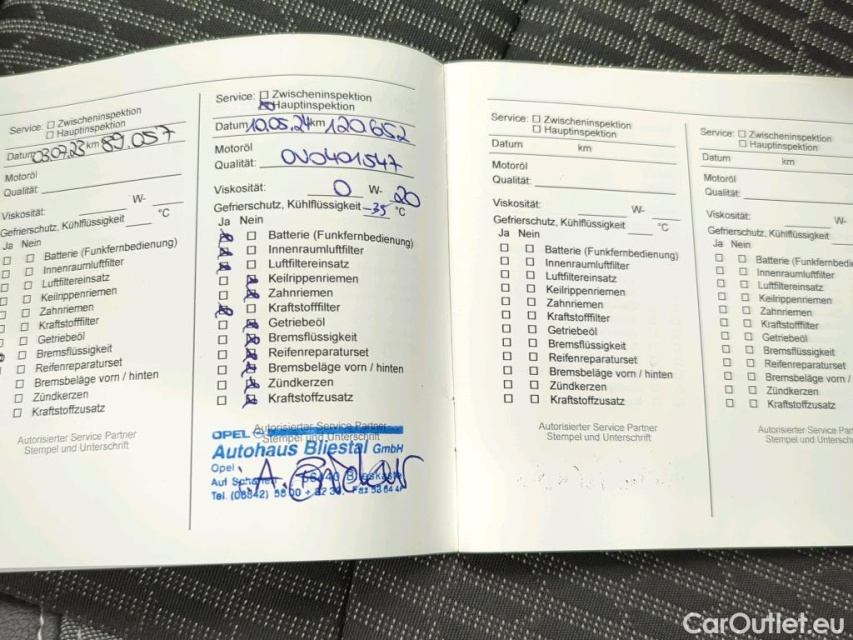 Service: Zwischeninspektion
Hauptinspektion
Datum 03.07.23 km 89.057
Motoröl
Qualität:
Viskosität: W-
Gefrierschutz, Kühlflüssigkeit °C
Ja Nein
Batterie (Funkfernbedienung)
Innenraumluftfilter
Luftfiltereinsatz
Keilrippenriemen
Zahnriemen
Kraftstofffilter
Getriebeöl
Bremsflüssigkeit
Reifenreparaturset
Bremsbeläge vorn / hinten
Zündkerzen
Kraftstoffzusatz
Autorisierter Service Partner
Stempel und Unterschrift
Service: Zwischeninspektion
Hauptinspektion
Datum 10.05.24 km 120.652
Motoröl
Qualität: OV0401547
Viskosität: 0 W- 20
Gefrierschutz, Kühlflüssigkeit -35 °C
Ja Nein
Batterie (Funkfernbedienung)
Innenraumluftfilter
Luftfiltereinsatz
Keilrippenriemen
Zahnriemen
Kraftstofffilter
Getriebeöl
Bremsflüssigkeit
Reifenreparaturset
Bremsbeläge vorn / hinten
Zündkerzen
Kraftstoffzusatz
Autorisierter Service Partner
Stempel und Unterschrift
OPEL
Autohaus Bliestal GmbH
Opel
Auf
Tel. (06842)
Service: Zwischeninspektion
Hauptinspektion
Datum km
Motoröl
Qualität:
Viskosität: W-
Gefrierschutz, Kühlflüssigkeit °C
Ja Nein
Batterie (Funkfernbedienung)
Innenraumluftfilter
Luftfiltereinsatz
Keilrippenriemen
Zahnriemen
Kraftstofffilter
Getriebeöl
Bremsflüssigkeit
Reifenreparaturset
Bremsbeläge vorn / hinten
Zündkerzen
Kraftstoffzusatz
Autorisierter Service Partner
Stempel und Unterschrift
Service: Zwischeninspektion
Hauptinspektion
Datum km
Motoröl
Qualität:
Viskosität: W-
Gefrierschutz, Kühlflüssigkeit
Ja Nein
Batterie (Funkfernbedie
Innenraumluftfilter
Luftfiltereinsatz
Keilrippenriemen
Zahnriemen
Kraftstofffilter
Getriebeöl
Bremsflüssigkeit
Reifenreparaturset
Bremsbeläge vorn /
Zündkerzen
Kraftstoffzusatz
Autorisierter Service Part
Stempel und Unterschrif
CarOutlet.eu